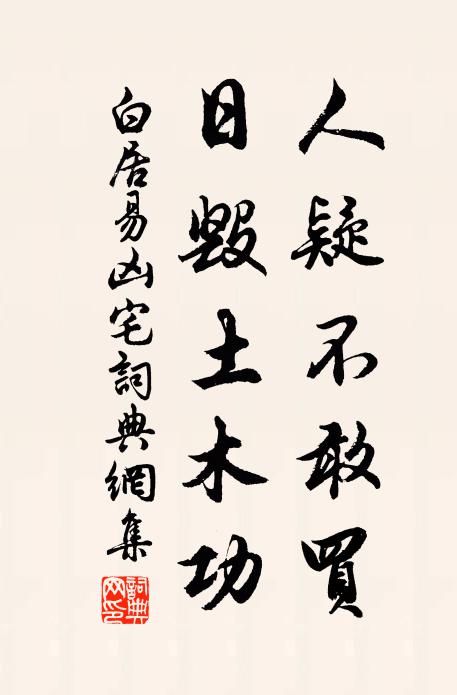 人疑不敢買
日毀土木功
白居易凶宅詞典網集
詞典網印